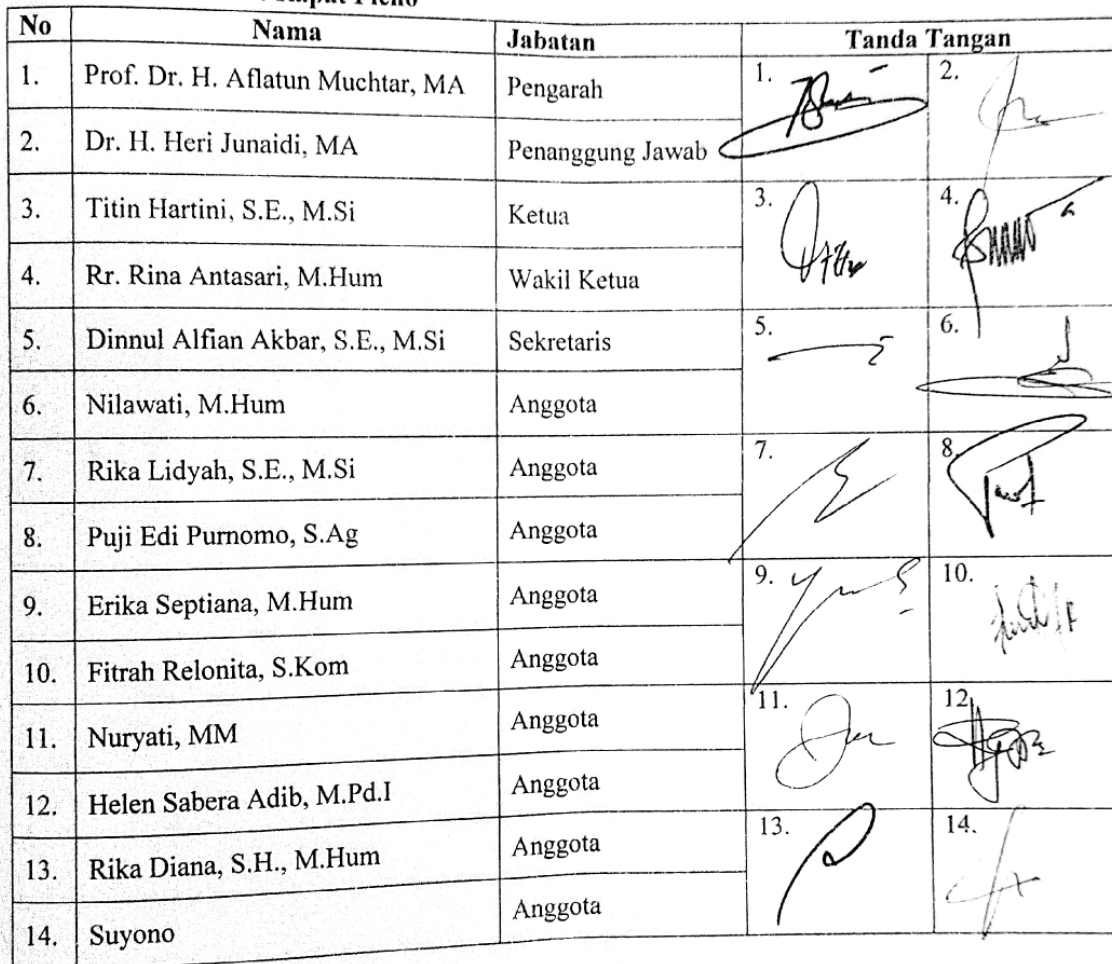 Pleno
No Nama Jabatan Tanda Tangan
1. Prof. Dr. H. Aflatun Muchtar, MA Pengarah 1. 2.
2. Dr. H. Heri Junaidi, MA Penanggung Jawab
3. Titin Hartini, S.E., M.Si Ketua 3. 4.
4. Rr. Rina Antasari, M.Hum Wakil Ketua
5. Dinnul Alfian Akbar, S.E., M.Si Sekretaris 5. 6.
6. Nilawati, M.Hum Anggota
7. Rika Lidyah, S.E., M.Si Anggota 7. 8.
8. Puji Edi Purnomo, S.Ag Anggota
9. Erika Septiana, M.Hum Anggota 9. 10.
10. Fitrah Relonita, S.Kom Anggota
11. Nuryati, MM Anggota 11. 12.
12. Helen Sabera Adib, M.Pd.I Anggota
13. Rika Diana, S.H., M.Hum Anggota 13. 14.
14. Suyono Anggota